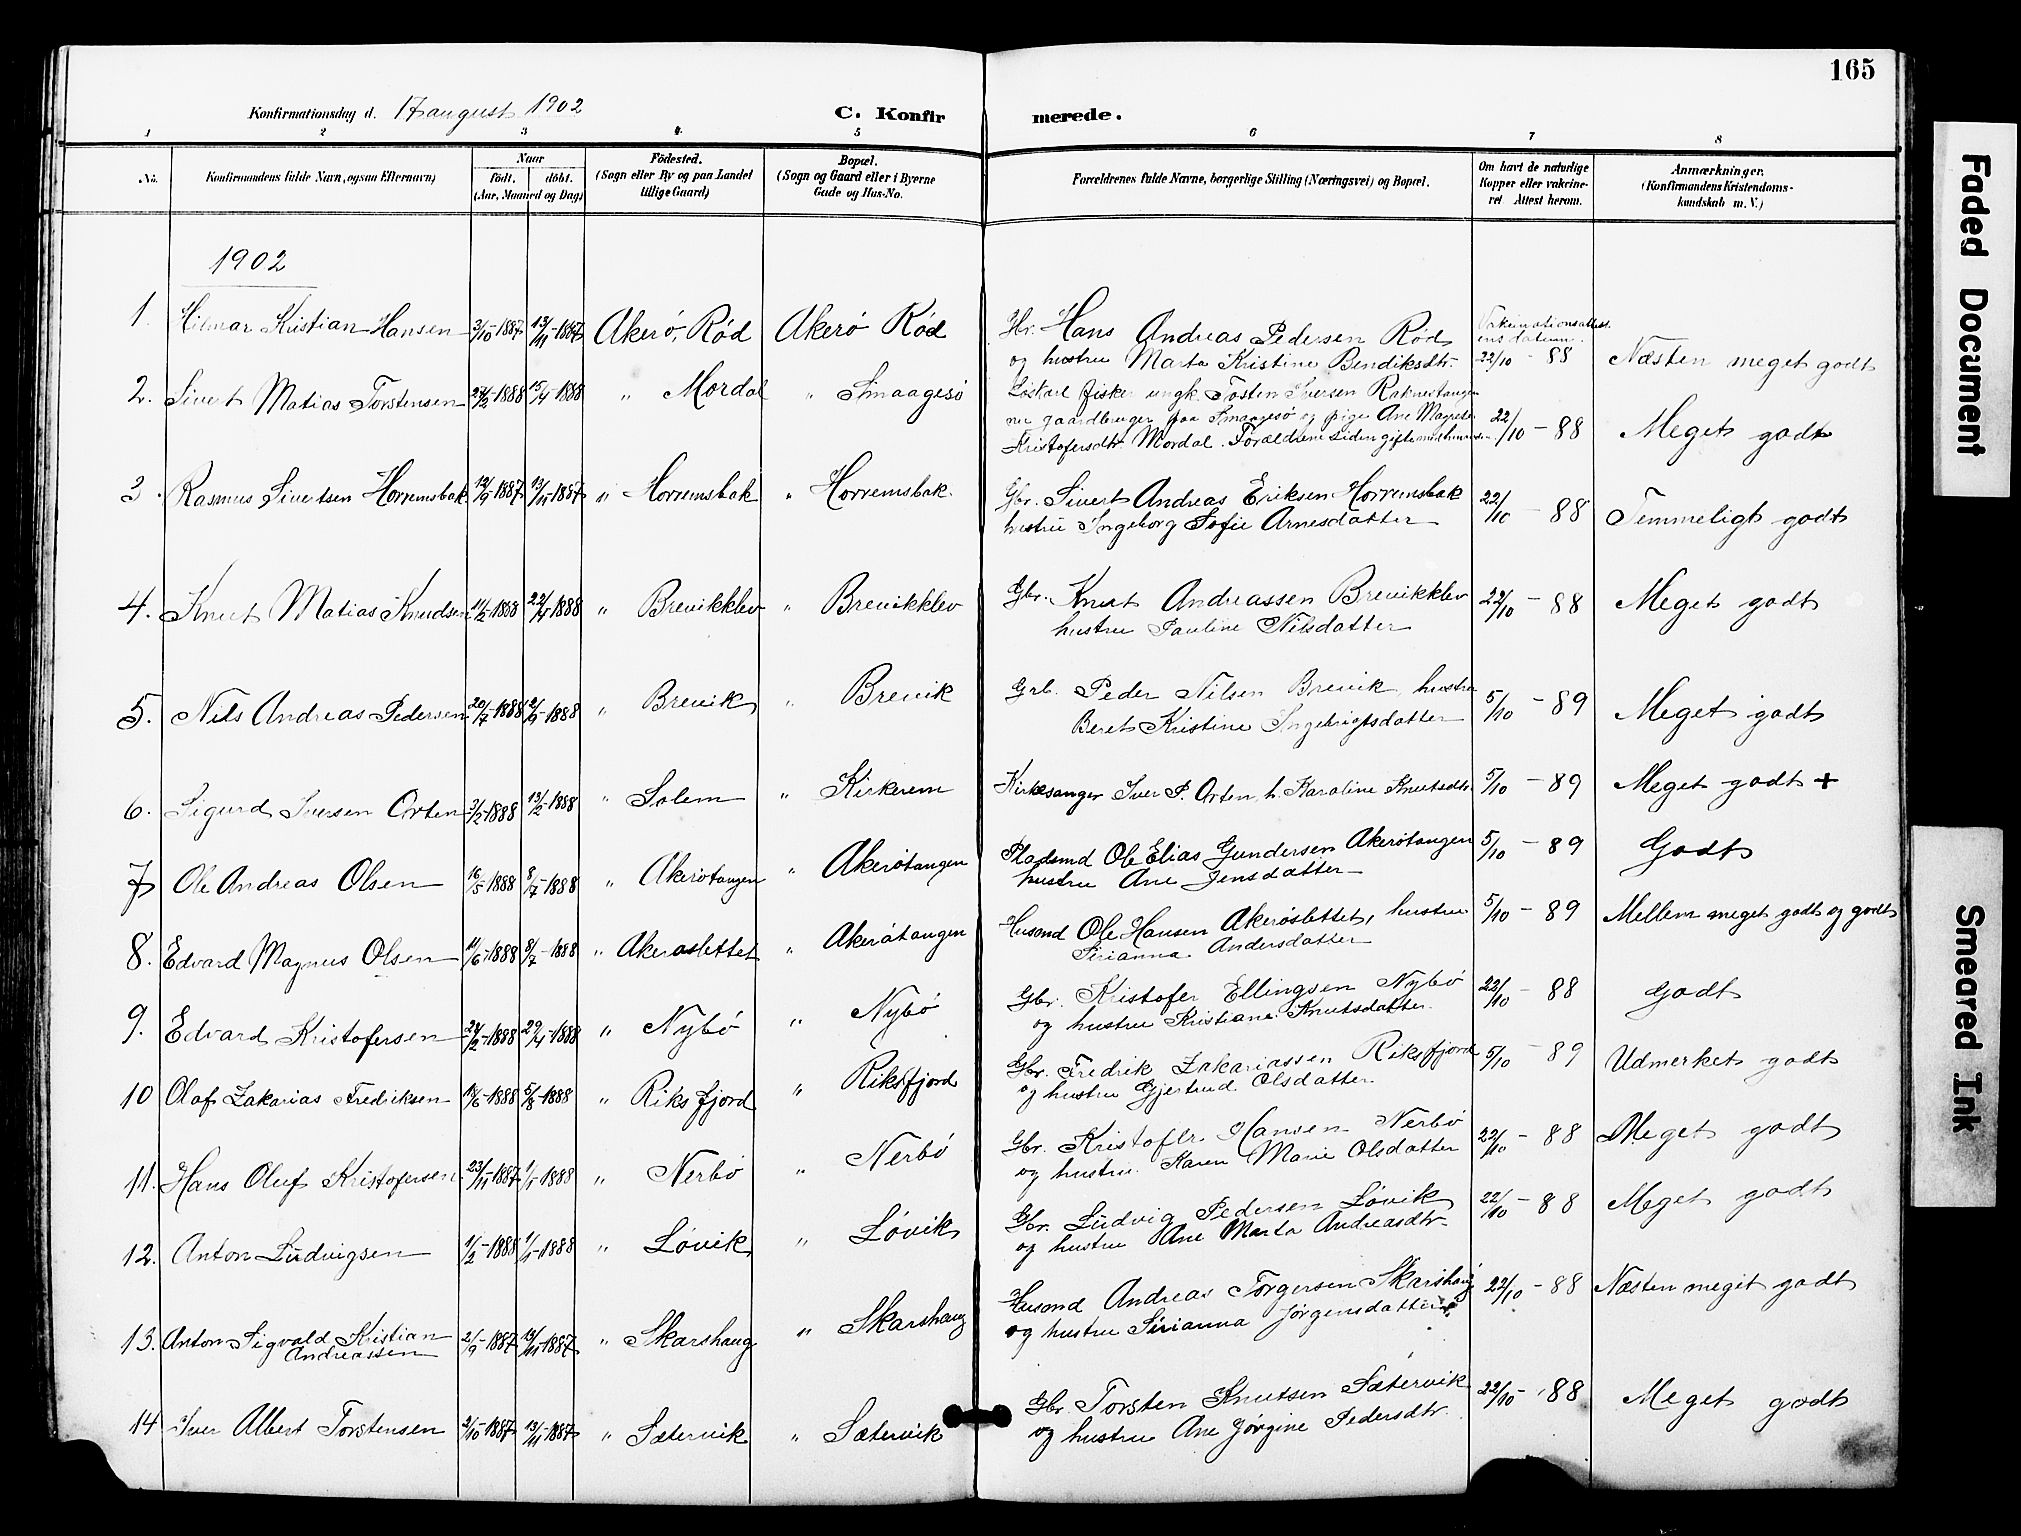 165
Konfirmationsdag d. 17 august 1902
C. Konfirmerede.
1 2 3 4 5 6 7 8
No. Konfirmandens fulde Navn, ogsaa Efternavn) Naar født. døbt. (Aar, Maaned og Dag) Fødested. (Sogn eller By og paa Landet tillige Gaard) Bopæl. (Sogn og Gaard eller i Byerne Gade og Hus-No. Forældrenes fulde Navne, borgerlige Stilling (Næringsvei) og Bopæl. Om havt de naturlige Kopper eller vakcineret Attest herom. Anmærkninger. (Konfirmandens Kristendomskundskab m. V.)
1902
1. Hilmar Kristian Hansen 3/10-1887 13/11-1887 Akerø, Rød Akerø Rød Gbr. Hans Andreas Pedersen Rød
og hustru Marta Kristine Bendiksdtr. 22/10 - 88 Næsten meget godt
2. Sivert Matias Torstensen 1888 15/4-1888 " Mordal " Smaagesø Løskarl fisker ungk. Tosten Iversen Raknestangen
nu gaardbruger paa Smaagesø og pige Ane Magrete
Kristofersdtr. Mordal. Forældrene siden gifte med hinanden 22/10 - 88 Meget godt
3. Rasmus Sivertsen Horremsbak 12/9 1887 13/11-1887 " Horremsbak " Horremsbak. Gbr. Sivert Andreas Eriksen Horremsbak
hustru Ingeborg Sofie Arnesdatter 22/10 - 88 Temmeligt godt
4. Knut Matias Knudsen 1888 22/4-1888 " Brevikklev " Brevikklev Gbr. Knut Andreassen Brevikklev
hustru Pauline Nilsdatter 22/10 - 88 Meget godt
5. Nils Andreas Pedersen 20/7-1888 2/9-1888 " Brevik " Brevik Grb. Peder Nilsen Brevik, hustru
Beret Kristine Ingebrigtsdatter 5/10 - 89 Meget godt
6. Sigurd Iversen Orten 2/2-1888 13/2-1888 " Solem " Kirkerem Kirkesanger Iver P. Orten, h. Karoline Knutsdtr. 5/10 - 89 Meget godt +
7 Ole Andreas Olsen 16/5-1888 8/7-1888 " Akerøtangen " Akerøtangen Pladsmd Ole Elias Gundersen Akerøtangen
hustru Ane Jensdatter 5/10 - 89 Godt
8. Edvard Magnus Olsen 11/6-1888 8/7-1888 " Akerøslettet " Akerøtangen Husmd Ole Hansen Akerøslettet, hustru
Sirianna Andersdatter 5/10 - 89 Mellem meget godt og godt
9. Edvard Kristofersen 24/2-1888 29/4-1888 " Nybø " Nybø Gbr. Kristofer Ellingsen Nybø
og hustru Kristiane Knutsdatter. 22/10 - 88 Godt
10 Olaf Zakarias Fredriksen 1888 5/8-1888 " Riksfjord " Riksfjord Gbr. Fredrik Zakariassen Riksfjord
og hustru Gjertrud Olsdatter 5/10 - 89 Udmerket godt
11. Hans Oluf Kristofersen 23/11-1887 1/1-1888 " Nerbø " Nerbø Gbr. Kristofer Hansen Nerbø
og hustru Karen Marie Olsdatter 22/10 - 88 Meget godt
12. Anton Ludvigsen 1/2-1888 1/4-1888 " Løvik " Løvik Gbr. Ludvig Pedersen Løvik
og hustru Ane Marta Andreasdtr. 22/10 - 88 Meget godt
13. Anton Sigvald Kristian
Andreassen 2/9-1887 13/11-1887 " Skarshaug " Skarshaug Husmd Andreas Torgersen Skarshaug
og hustru Sirianna Jørgensdatter 22/10 - 88 Næsten meget godt
14 Iver Albert Torstensen 2/10-1887 13/11-1887 " Sætervik " Sætervik Gbr. Torsten Knutsen Sætervik
og hustru Ane Jørgine Pedersdtr. 22/10 - 88 Meget godt
Faded Document
Smeared Ink